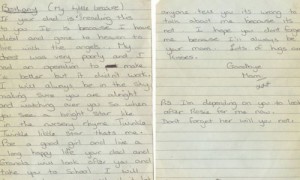 Bethany (my little treasure)
If your dad is reading this
to you it is because I have
died and gone to heaven to
live with the angels. My
chest was very poorly and I
had an operation to make
it better but it didn't work.
I will always be in the sky
making sure you are alright
and watching over you so when
you see a bright star like
in the nursery rhyme Twinkle
Twinkle little star thats me.
Be a good girl and live a
long happy life your dad and
who look after you and
take you to school I will
anyone that you its wrong to
talk about me because its
not. I hope you dont forget
me because I'm always be
your mam. Lots of hugs and
kisses.
Goodnight
Mam
xxx
As I'm depending on you to look
after Rosie for me now.
Dont forget her will you not.